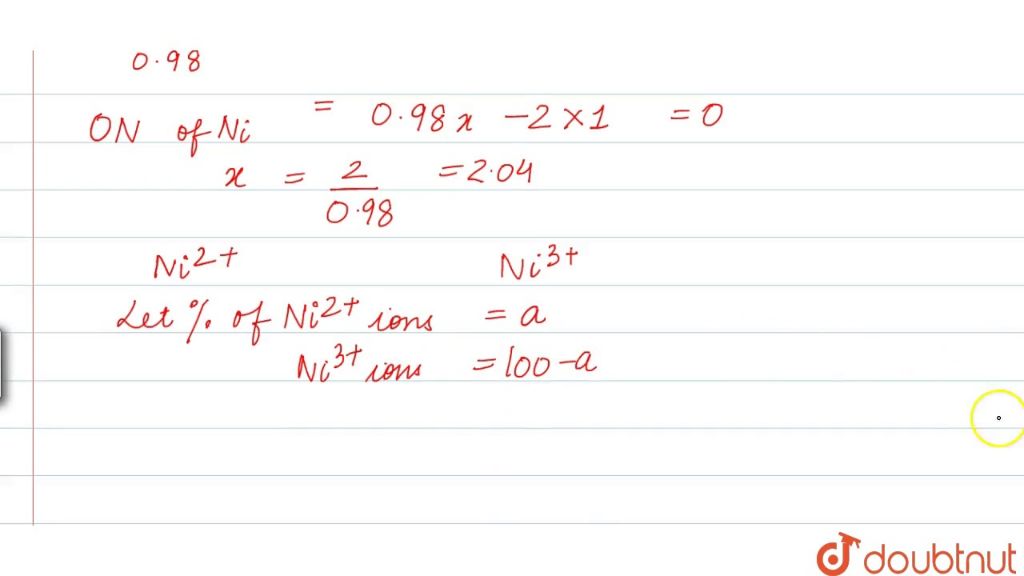 0.98
ON of Ni = 0.98x - 2 × 1 = 0
x = 2/0.98 = 2.04
Ni2+ Ni3+
Let % of Ni2+ ions = a
Ni3+ ions = 100-a
doubtnut